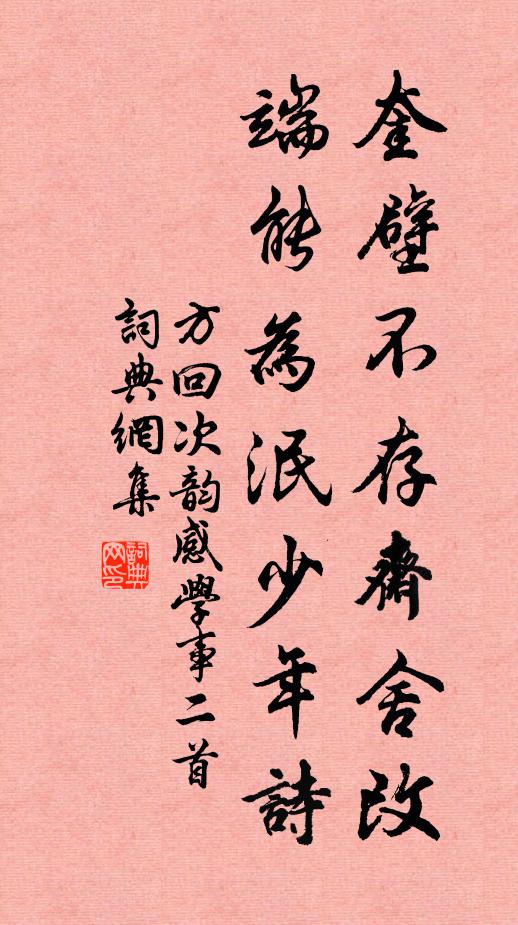 奎壁不存齋舍改
端能為泯少年詩
方回次韵感學事二首
詞典網集
詞典网印